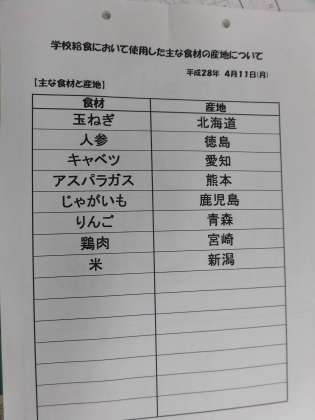 学校給食において使用した主な食材の産地について
平成28年 4月11日(月)
【主な食材と産地】
食材 産地
玉ねぎ 北海道
人参 徳島
キャベツ 愛知
アスパラガス 熊本
じゃがいも 鹿児島
りんご 青森
鶏肉 宮崎
米 新潟